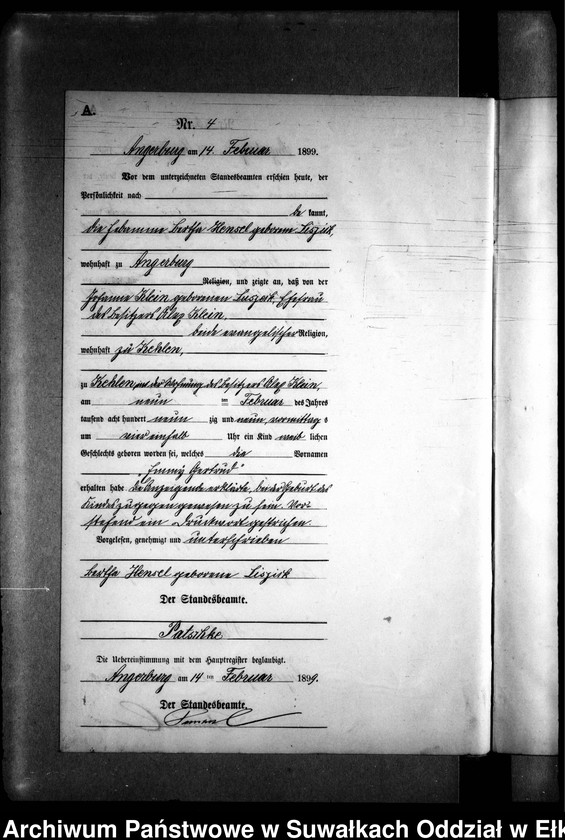 A.
Nr. 4
Angerburg am 14. Februar 1899.
Vor dem unterzeichneten Standesbeamten erschien heute, der
Persönlichkeit nach
be kannt,
die Hebamme Bertha Hensel geborene Liszick,
wohnhaft zu Angerburg
Religion, und zeigte an, daß von der
Johanne Klein geborenen Luszick, Ehefrau
des Besitzers Klein,
beide evangelischer Religion,
wohnhaft zu Kehlen,
zu Kehlen, in der Wohnung des Besitzers Klein,
am neun ten Februar des Jahres
tausend acht hundert neun zig und neun, vormittag s
um vier einhalb Uhr ein Kind weib lichen
Geschlechts geboren worden sei, welches die Vornamen
„Emmy Gertrud"
erhalten habe. Die Anzeigende erklärte, bei der Geburt des
Kindes zugegen gewesen zu sein. Vor-
stehend ein Druckwort gestrichen.
Vorgelesen, genehmigt und unterschrieben
Bertha Hensel geborene Liszick
Der Standesbeamte.
Patschke.
Die Uebereinstimmung mit dem Hauptregister beglaubigt.
Angerburg am 14 ten Februar 1899.
Der Standesbeamte.
Archiwum Państwowe w Suwałkach Oddział w Ełk